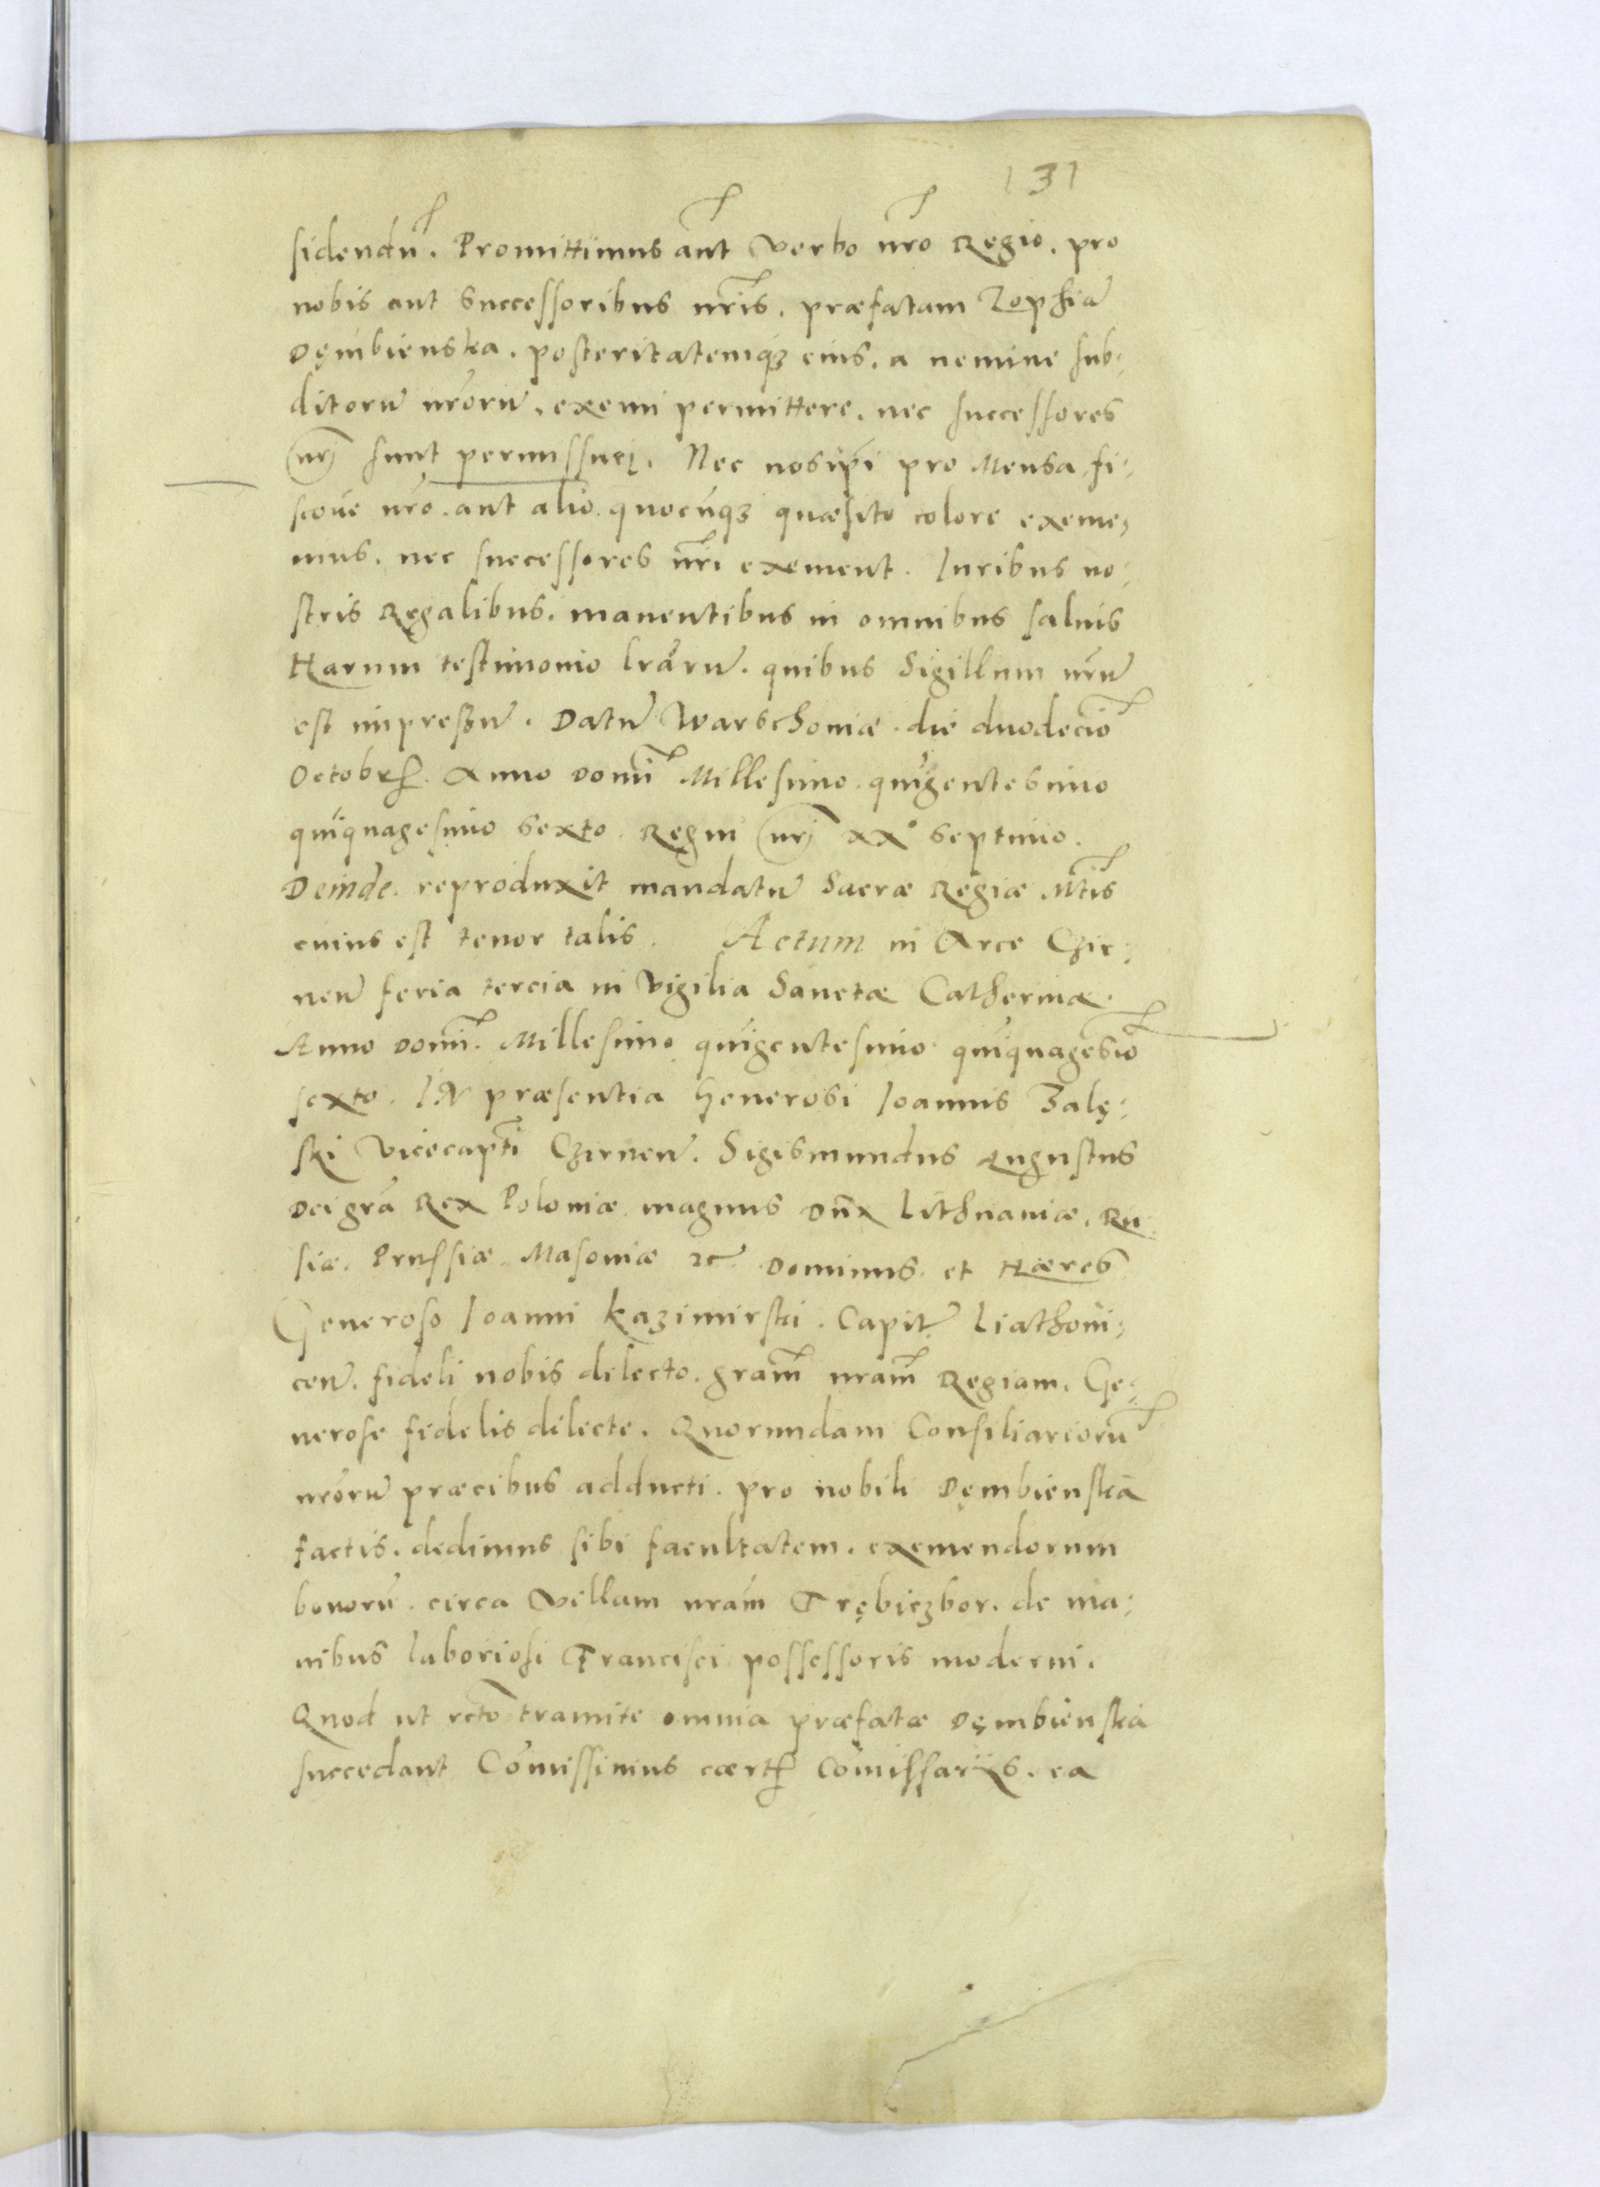 131
sidendū. Promittimus aūt verbo nr̄o Regio. pro
nobis aut Successoribus nr̄is. præfatam Zophiā
Dęmbienska. posteritatemqȝ eius. a nemine sub:
ditorū nr̄orū. eximi permittere. nec successores
nrj̄ sunt permissuri. Nec nosip̄i pro Mensa fi:
scoue nr̄o. aut alio. quocūqȝ quæsito colore exeme:
mus. nec successores nr̄i exement. Iuribus no:
stris Regalibus. manentibus in omnibus saluis
Harum testimonio lr̄arū. quibus Sigillum nr̄ū
est impressū. Datū Warschouiæ. die duodecīo
Octobr̄. Anno Domī Millesimo. quīgentesimo
quīquagesimo Sexto. Regni nrj̄ xxº Septimo.
Deinde. reproduxit mandatū Sacræ Regiæ Mt̄is
cuius est tenor talis. Actum in Arce Czir:
neñ feria tercia in vigilia Sanctæ Catherinæ.
Anno Domī. Millesimo quīgentesimo quīquagesīo
sexto. IN præsentia Generosi Ioannis Zalę:
ski Vicecapt̄i Czirneñ. Sigismundus Augustus
Dei gr̄a Rex Poloniæ magnus Dux Lithuaniæ. Ru
siæ. Prussiæ. Masouiæ ꝛc̄ Dominus. et Hæres
Generoso Ioanni Kazimirski. Capit̄ Liathoui:
ceñ. fideli nobis dilecto. gr̄am nr̄am Regiam. Ge:
nerose fidelis dilecte. Quorundam Consiliariorū
nr̄orū præcibus adducti. pro nobili Dęmbienska
factis. dedimus sibi facultatem. exemendorum
bonorū. circa villam nr̄am Trębiczbor. de ma:
nibus laboriosi Francisci possessoris moderni.
Quod ut rcto tramite omnia præfatæ Dęmbienska
succedant Com̄issimus cært̄ Com̄issariis. ea